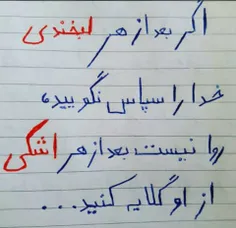 اگر بعد از هر لبخندی
خدا را سپاس نگویید،
روا نیست بعد از هر اشکی
از او گلایه کنید...